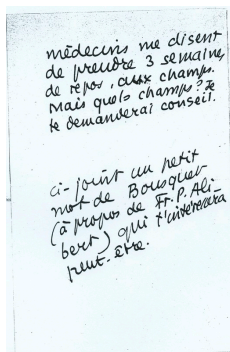 médecins me disent
de prendre 3 semaines
de repos, aux champs.
Mais quels champs? Je
te demanderai conseil.
ci-joint un petit
mot de Bousquet
(à propos de Fr. P. Ali-
bert) qui t'intéressera
peut-être.